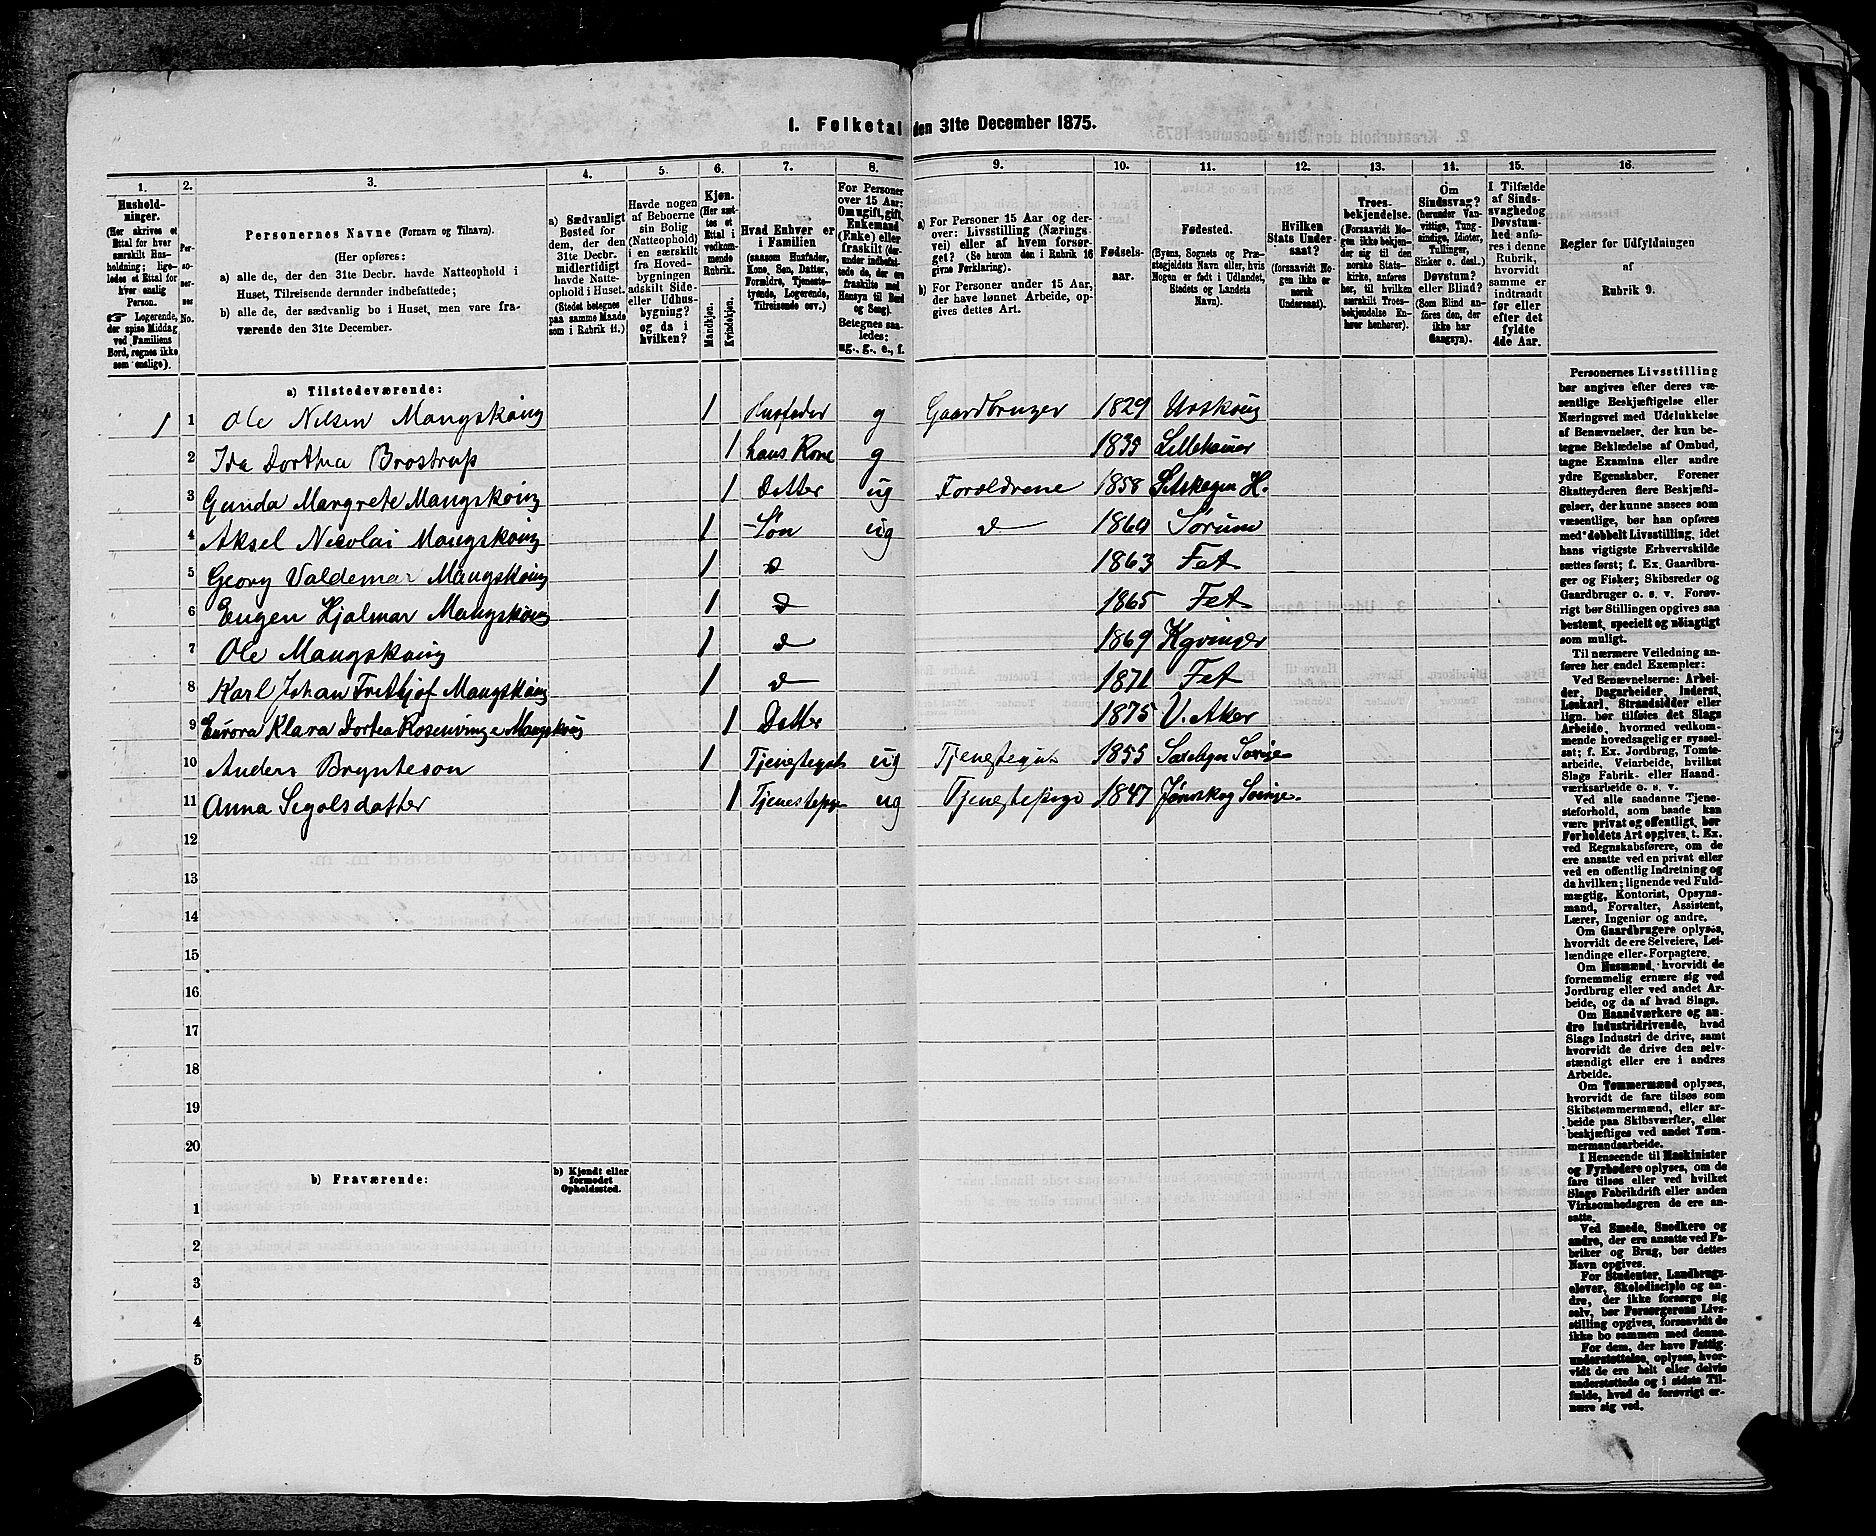 1. Folketal den 31te December 1875.
1.
2.
3.
4.
5.
6.
7.
8.
9.
10.
11.
12.
13.
14.
15.
16.
Hushold-
ninger.
(Her skrives et
Ettal for hver
særskilt Hus-
holdning; lige-
ledes et Ettal for
hver enslig
Person.
☞ Logerende,
der spise Middag
ved Familiens
Bord, regnes ikke
som enslige).
Per-
so-
ner-
nes
No.
Personernes Navne (Fornavn og Tilnavn).
(Her opføres:
a) alle de, der den 31te Decbr. havde Natteophold i
Huset, Tilreisende derunder indbefattede;
b) alle de, der sædvanlig bo i Huset, men vare fra-
værende den 31te December.
a) Sædvanligt
Bosted for
dem, der den
31te Decbr.
midlertidigt
havde Natte-
ophold i Huset.
(Stedet betegnes
paa samme Maade
som i Rubrik 11.)
Havde nogen
af Beboerne
sin Bolig
(Natteophold)
i en særskilt
fra Hoved-
bygningen
adskilt Side-
eller Udhus-
bygning?
og da i
hvilken?
Kjøn.
(Her sæt-
tes et
Ettal i
vedkom-
mende
Rubrik.
Mandkjøn.
Kvindekjøn.
Hvad Enhver er
i Familien
(saasom Husfader,
Kone, Søn, Datter,
Forældre, Tjeneste-
tyende, Logerende,
Tilreisende osv.)
For Personer
over 15 Aar:
Om ugift, gift,
Enkemand
(Enke) eller
fraskilt (der-
under indbefat-
tede de, der ere
fraskilte med
Hensyn til Bord
og Seng).
Betegnes saa-
ledes:
ug., g., e., f.
a) For Personer 15 Aar og der-
over: Livsstilling (Nærings
vei) eller af hvem forsør-
get? (Se herom den i Rubrik 16
givne Forklaring).
b) For Personer under 15 Aar,
der have lønnet Arbeide, op-
gives dettes Art.
Fødsels-
aar.
Fødested.
(Byens, Sognets og Præ-
stegjeldets Navn eller, hvis
Nogen er født i Udlandet,
Stedets og Landets
Navn).
Hvilken
Stats Under-
saat?
(forsaavidt No-
gen ikke er
norsk
Undersaat).
Troes-
bekjendelse.
(Forsaavidt No-
gen ikke bekjen-
der sig til den
norske Stats-
kirke, anføres
her, til hvilken
særskilt Troes-
bekjendelse En-
hver henhører).
Om
Sindssvag?
(herunder Van-
vittige, Tung-
sindige, Idioter,
Tullinger,
Sinker o. desl.)
Døvstum?
eller Blind?
(Som Blind an-
føres den, der
ikke har
Gangsyn).
I Tilfælde
af Sinds-
svaghed og
Døvstum-
hed anfø-
res i denne
Rubrik,
hvorvidt
samme er
indtraadt
før eller
efter det
fyldte
4de Aar.
Regler for Udfyldningen
af
Rubrik 9.
a) Tilstedeværende:
1 1 Ole Nilsen Mangskoug 1 Husfader g Gaardbruger 1829 Urskoug
2 Ida Dorthea Brostrup 1 hans Kone g 1835 Lillehamer
3 Gunda Margrete Mangskoug 1 Datter ug Forældrene 1858 Setskogen H.
4 Aksel Nicolai Mangskoug 1 Søn ug d 1860 Sørum
5 Georg Valdemar Mangskoug 1 d 1863 Fet
6 Eugen Hjalmar Mangskoug 1 d 1865 Fet
7 Ole Mangskoug 1 d 1869 Kgvinger
8 Karl Johan Frithjof Mangskoug 1 d 1871 Fet
9 Eurora Klara Dortea Rosenvinge Mangskoug 1 Datter 1875 V. Aker
10 Anders Brynteson 1 Tjenestegut ug Tjenestegut 1855
11 Anna Segolsdatter 1 Tjenestepge ug Tjenestepige 1847 Jernskog
12
13
14
15
16
17
18
19
20
b) Fraværende:
b) Kjendt eller
formodet
Opholdssted.
1
2
3
4
5
Personernes Livsstilling
bør angives efter deres væ-
sentlige Beskjæftigelse eller
Næringsvei med Udelukkelse
af Benævnelser, der kun be-
tegne Beklædelse af Ombud,
tagne Examina eller andre
ydre Egenskaber. Forener
Skatteyderen flere Beskjæfti-
gelser, der kunne ansees som
væsentlige, bør han opføres
med dobbelt Livsstilling, idet
hans vigtigste Erhvervskilde
sættes først; f. Ex. Gaardbru-
ger og Fisker; Skibsreder og
Gaardbruger o. s. v. Forøv-
rigt bør Stillingen opgives saa
bestemt, specielt og nøiagtigt
som muligt.
Til nærmere Veiledning an-
føres her endel Exempler:
Ved Benævnelserne: Arbei-
der, Dagarbeider, Inderst,
Løskarl, Strandsidder eller
lign. bør tilføies det Slags
Arbeide, hvormed vedkom-
mende hovedsagelig er syssel-
sat; f. Ex. Jordbrug, Tomte-
arbeide, Veiarbeide, hvilket
Slags Fabrik- eller Haand-
værksarbeide o. s. v.
Ved alle saadanne Tjen-
esteforhold, som baade kan
være privat og offentligt, bør
Forholdets Art opgives, t. Ex.
ved Regnskabsførere, om de
ere ansatte ved en privat eller
ved en offentlig Indretning og
da hvilken; lignende ved Fuld-
mægtig, Kontorist, Opsyns-
mand, Forvalter, Assistent,
Lærer, Ingeniør og andre.
Om Gaardbrugere oplyses,
hvorvidt de ere Selveiere, Lei-
lændinge eller Forpagtere.
Om Husmænd, hvorvidt de
fornemmelig ernære sig ved
Jordbrug eller ved andet Ar-
beide, og da af hvad Slags.
Om Haandværkere og an-
dre Industridrivende, hvad
Slags Industri de drive, samt
hvorvidt de drive den selv-
stændigt eller ere i andres
Arbeide.
Om Tømmermænd oplyses,
hvorvidt de fare tilsøs som
Skibstømmermænd, eller ar-
beide paa Skibsværfter, eller
beskjæftiges ved andet Tøm-
mermandsarbeide.
I Henseende til Maskinister
og Fyrbødere oplyses, om de
fare tilsøs eller ved hvilket
Slags Fabrikdrift eller anden
Virksomhedsgren de ere an-
satte.
Ved Smede, Snedkere og
andre, der ere ansatte ved Fa-
briker og Brug, bør dettes
Navn opgives.
For Studenter, Landbrugs-
elever, Skoledisciple og an-
dre, der ikke forsørge sig
selv, bør Forsørgerens Livs-
stilling opgives, forsaavidt de
ikke bo sammen med denne.
For dem, der have Fattig-
understøttelse, oplyses, hvor-
vidt de ere helt eller delvis
understøttede og i sidste Til-
fælde, hvad de forøvrigt er-
nære sig ved.